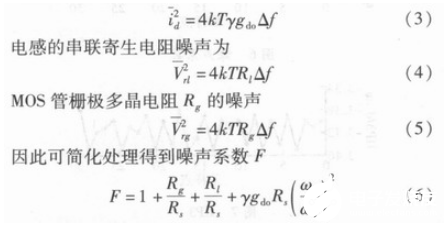 i̅_d^2 = 4kTγg_do Δf (3)
电感的串联寄生电阻噪声为
V̅_rl^2 = 4kTR_l Δf (4)
MOS 管栅极多晶电阻 R_g 的噪声
V̅_rg^2 = 4kTR_g Δf (5)
因此可简化处理得到噪声系数 F
F = 1 + R_g/R_s + R_l/R_s + γg_do R_s (ω